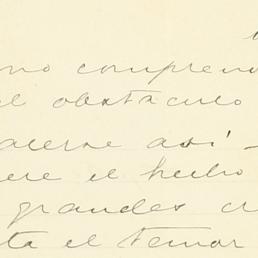 no comprend
el obstáculo
acerse así –
ere el hecho
grandes cr
ta el temor